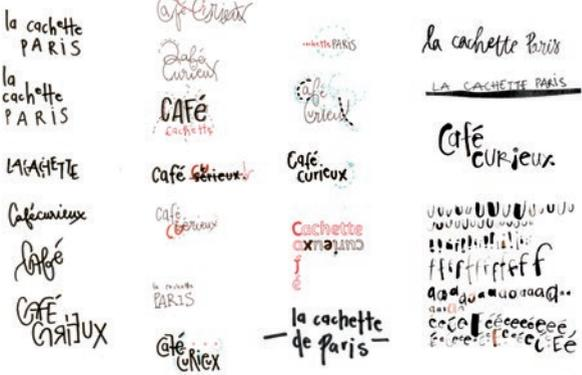 la cachette
PARIS
la
cachette
PARIS
LA CACHETTE
Cafécurieux
Café
CAFÉ
CURIEUX
Café Curieux
Café
Curieux
CAFÉ
cachette
Café cu sérieux!
café
cu sérieux
la cachette
PARIS
Café
CURIEUX
cachette PARIS
Café
Curieux
Café
curieux
Cachette
a xueiruc
f
é
la cachette
de Paris
la cachette Paris
LA CACHETTE PARIS
Café
CURIEUX.